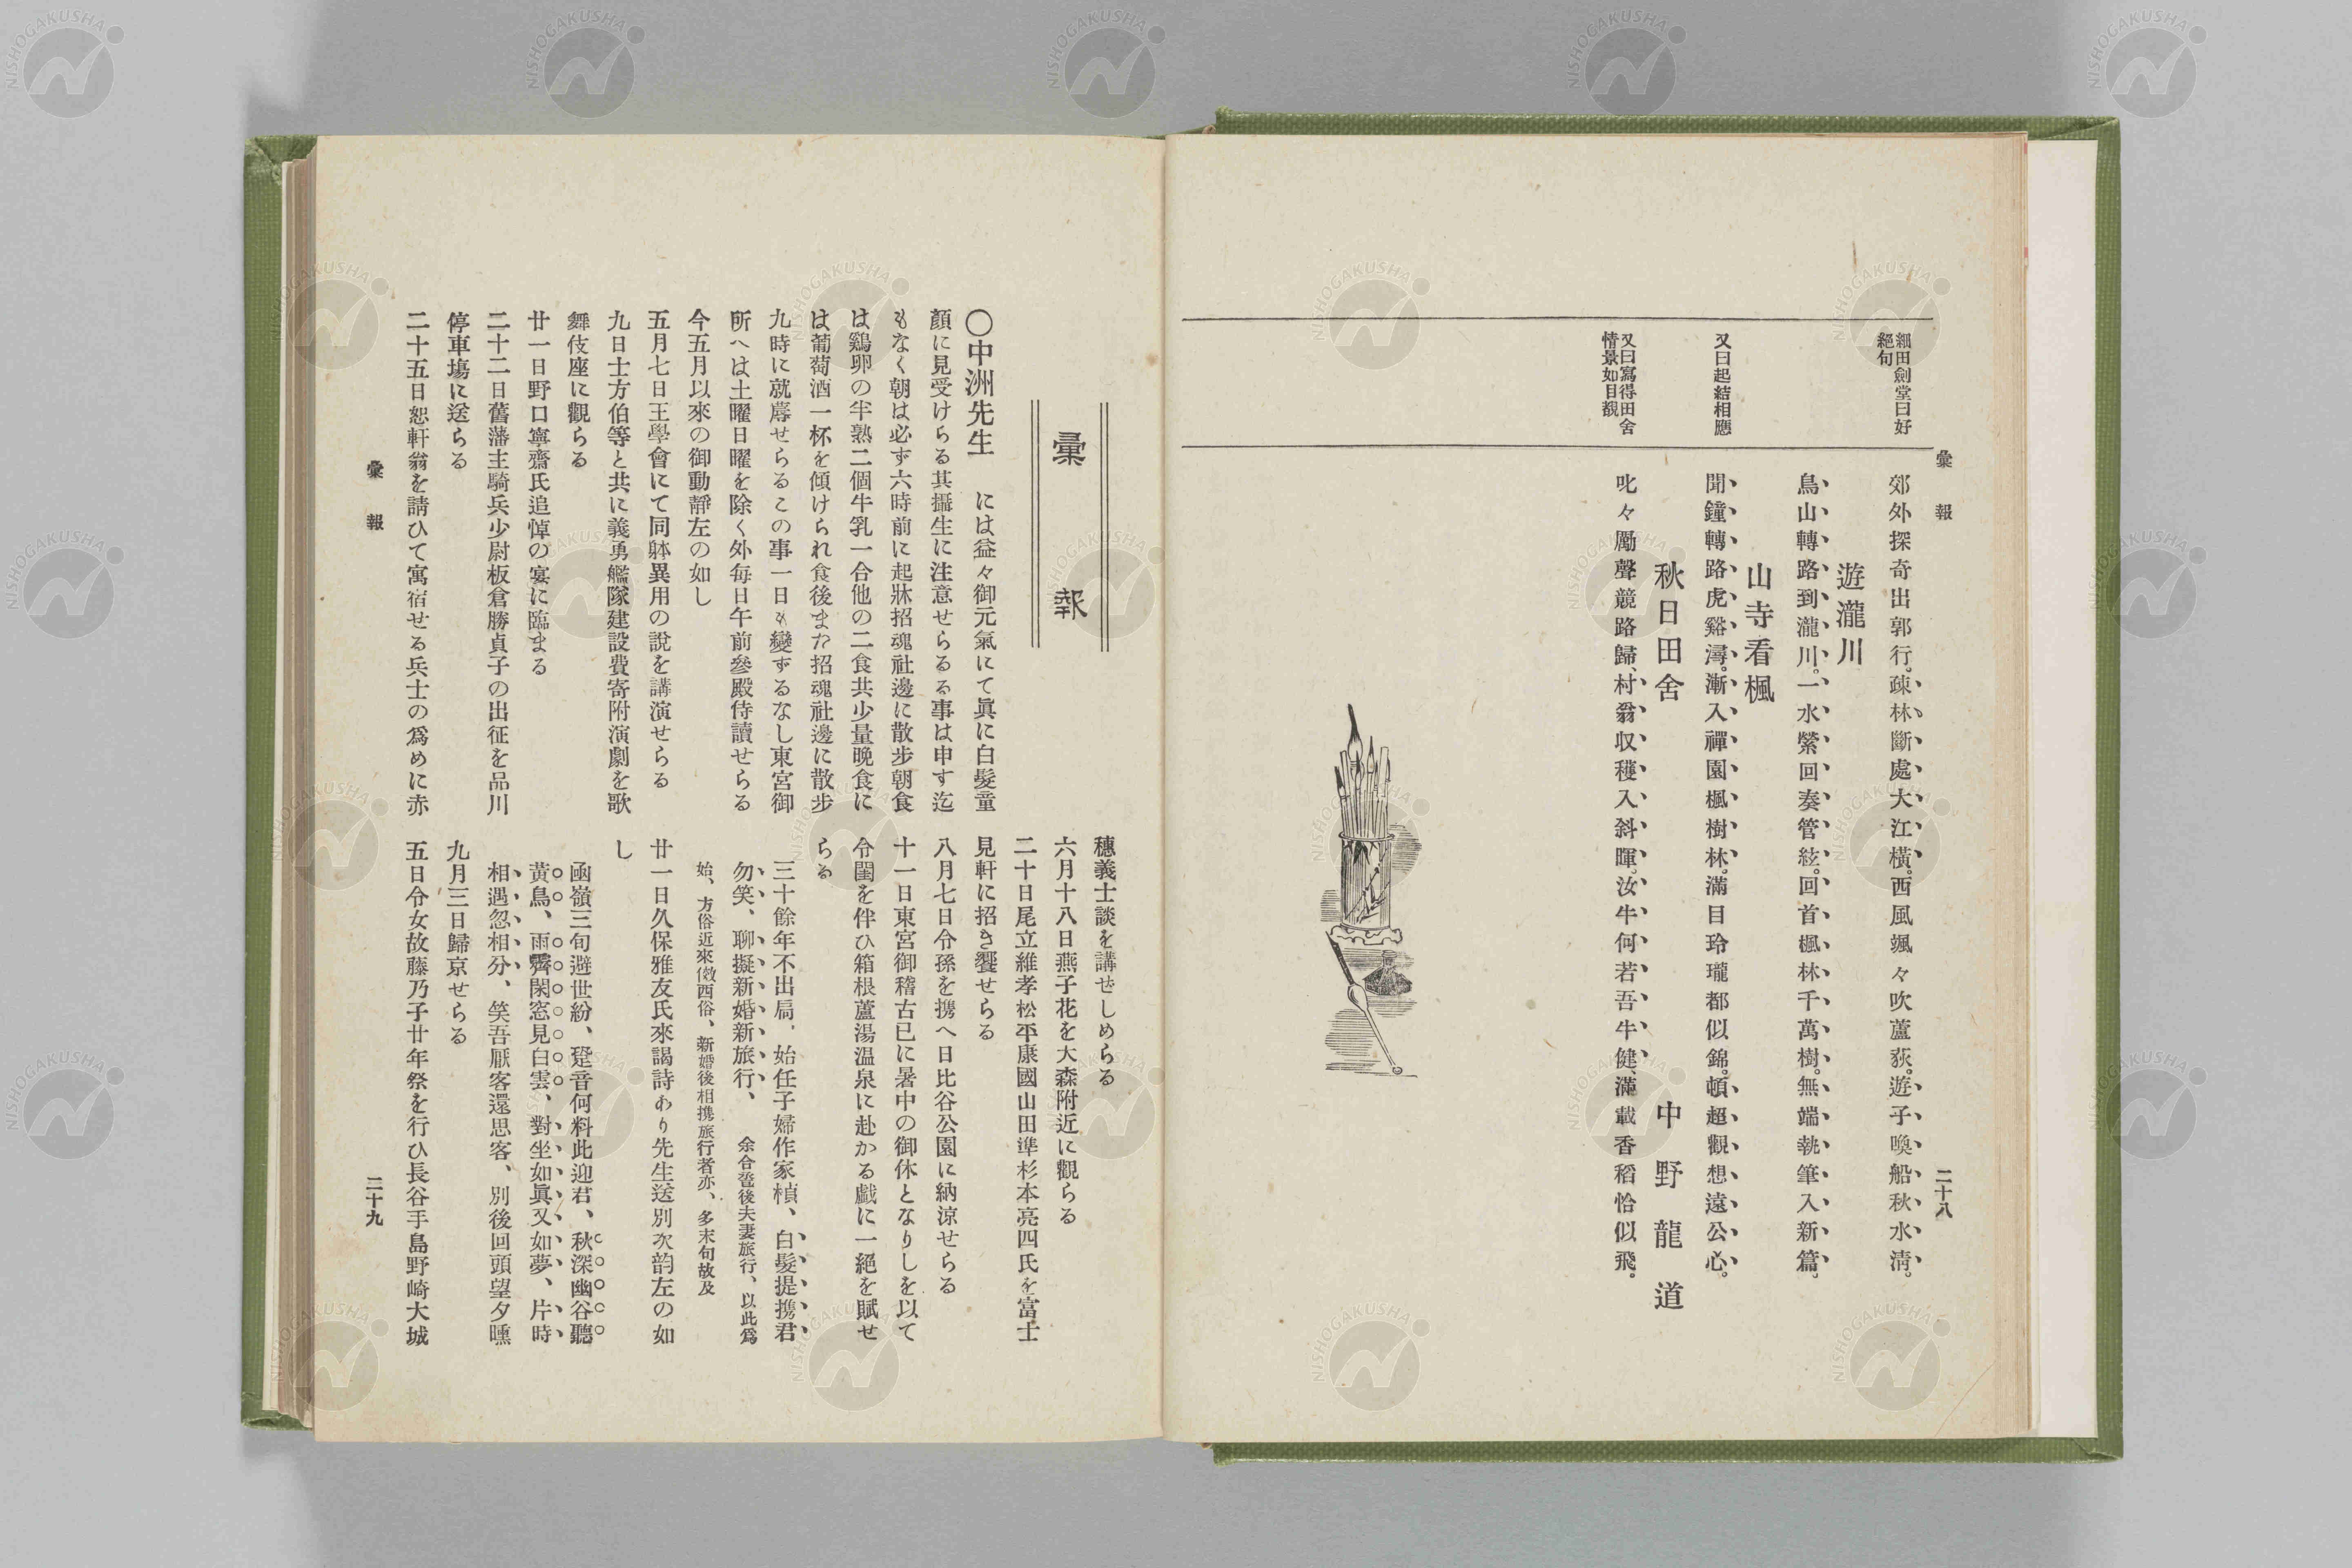 彙報
二十八
細田劍堂曰好
絕句
郊外探奇出郭行。疎林斷處大江橫。西風颯々吹蘆荻。遊子喚船秋水淸。
遊瀧川
鳥山轉路到瀧川。一水縈回奏管絃。回首楓林千萬樹。無端執筆入新篇。
山寺看楓
又曰起結相應
聞鐘轉路虎谿潯。漸入禪園楓樹林。滿目玲瓏都似錦。頓超觀想遠公心。
秋日田舍
中野龍道
又曰寫得田舍
情景如目覩
叱々厲聲競路歸、村翁収穫入斜暉。汝牛何若吾牛健、滿載香稻恰似飛。
彙報
〇中洲先生 には益々御元氣にて眞に白髮童
顏に見受けらる其攝生に注意せらるる事は申す迄
もなく朝は必ず六時前に起牀招魂社邊に散步朝食
は鷄卵の半熟二個牛乳一合他の二食共少量晩食に
は葡萄酒一杯を傾けられ食後また招魂社邊に散步
九時に就蓐せらるこの事一日も變ずるなし東宮御
所へは土曜日曜を除く外每日午前參殿侍讀せらる
今五月以來の御動靜左の如し
五月七日王學會にて同躰異用の說を講演せらる
九日士方伯等と共に義勇艦隊建設費寄附演劇を歌
舞伎座に觀らる
廿一日野口寧齋氏追悼の宴に臨まる
二十二日舊藩主騎兵少尉板倉勝貞子の出征を品川
停車場に送らる
二十五日恕軒翁を請ひて寓宿せる兵士の爲めに赤
穗義士談を講ぜしめらる
六月十八日燕子花を大森附近に觀らる
二十日尾立維孝松平康國山田準杉本亮四氏を富士
見軒に招き饗せらる
八月七日令孫を携へ日比谷公園に納涼せらる
十一日東宮御稽古已に暑中の御休となりしを以て
令閨を伴ひ箱根蘆湯温泉に赴かる戲に一絕を賦せ
らる
三十餘年不出扃、始任子婦作家楨、白髮提携君
勿笑、聊擬新婚新旅行、 余合巹後夫妻旅行、以此爲
始、方俗近來傚西俗、新婚後相携旅行者亦、多末句故及
廿一日久保雅友氏來謁詩あり先生送別次韵左の如
し
函嶺三旬避世紛、跫音何料此迎君、秋深幽谷聽
黃鳥、雨霽閑窓見白雲、對坐如眞又如夢、片時
相遇忽相分、笑吾厭客還思客、別後回頭望夕曛
九月三日歸京せらる
五日令女故藤乃子廿年祭を行ひ長谷手島野崎大城
彙報
二十九